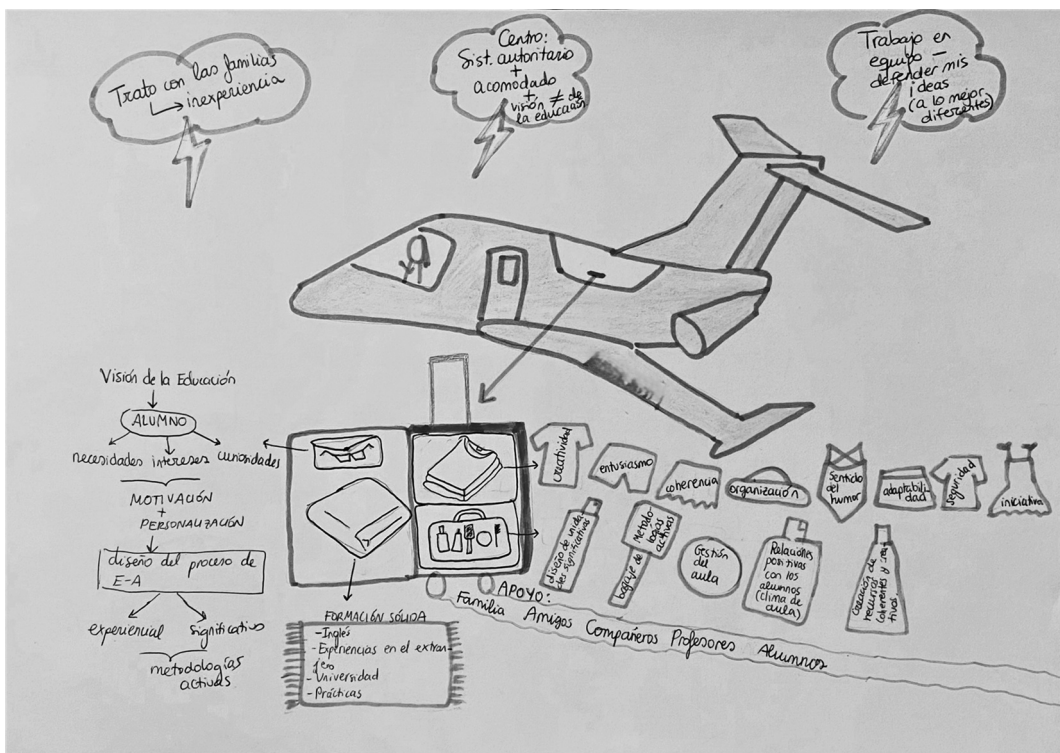 Trato con las familias
inexperiencia
Centro:
Sist. autoritario
+
acomodado
+
visión ≠ de
la educación
Trabajo en
equipo —
defender mis
ideas
(a lo mejor
diferentes)
Visión de la Educación
ALUMNO
necesidades intereses curiosidades
MOTIVACIÓN
+
PERSONALIZACIÓN
diseño del proceso de
E-A
experiencial significativo
metodologías
activas
FORMACIÓN SÓLIDA
-Inglés
-Experiencias en el extran-
jero
-Universidad
-Prácticas
creatividad
entusiasmo
coherencia
organización
Sentido
del
humor
adaptabili
dad
seguridad
iniciativa
diseño de unida
des significativas
bagaje de Metodo-
logías
activas
Gestión
del
aula
Relaciones
positivas
con los
alumnos
(clima de
aula)
creación de
recursos
coherentes y
tivos
APOYO:
Familia Amigos Compañeros Profesores Alumnos